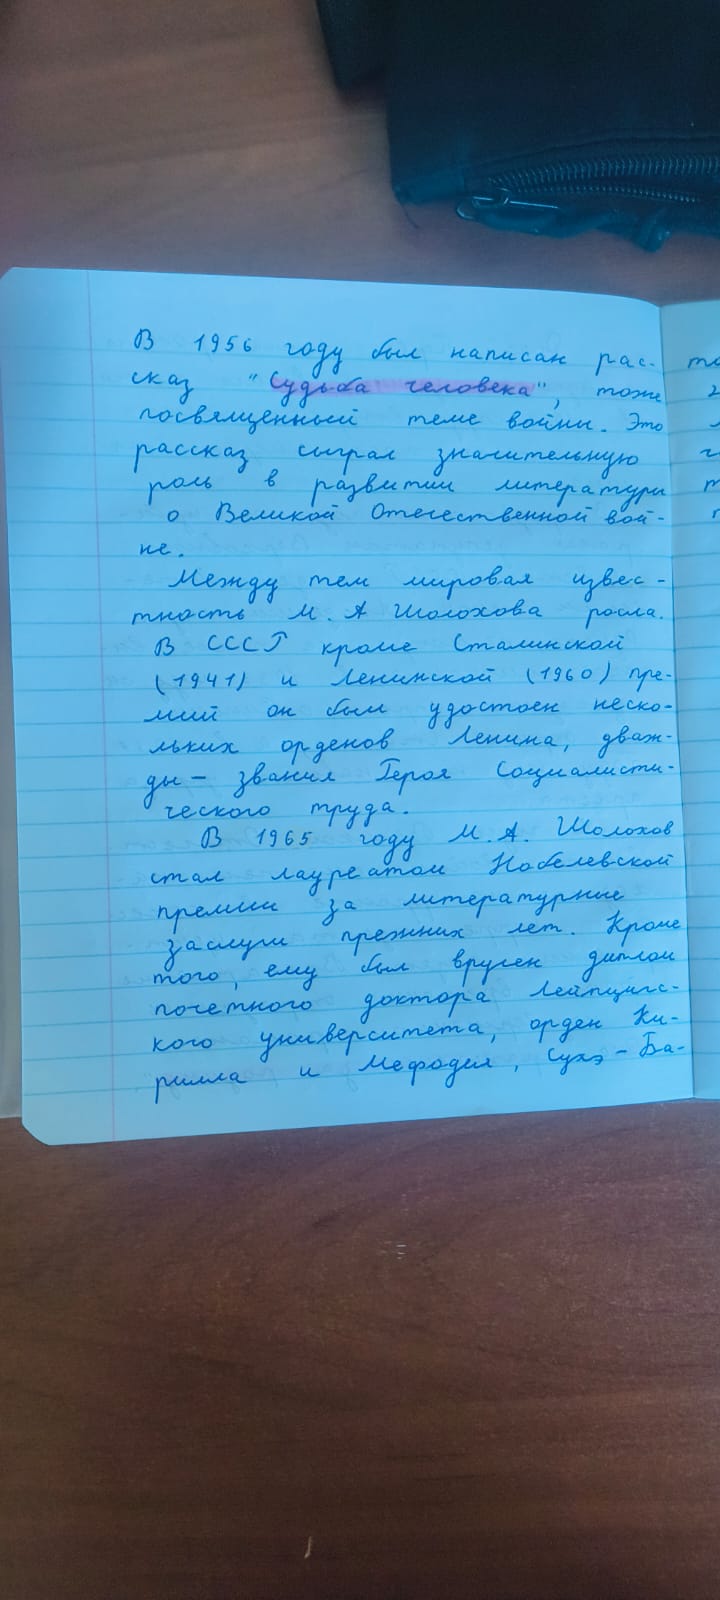 В 1956 году был написан рас-
сказ "Судьба человека", тоже
посвященный теме войны. Это
рассказ сыграл значительную
роль в развитии литературы
о Великой Отечественной вой-
не.
Между тем мировая извес-
тность М. А Шолохова росла.
В СССР кроме Сталинской
(1941) и Ленинской (1960) пре-
мий он был удостоен неско-
льких орденов Ленина, дваж-
ды - звания Героя Социалисти-
ческого труда.
В 1965 году М. А. Шолохов
стал лауреатом Нобелевской
премии за литературные
заслуги прежних лет. Кроме
того, ему был вручен диплом
почетного доктора Лейпцигс-
кого университета, орден Ки-
рилла и Мефодия, Сухэ-Ба-